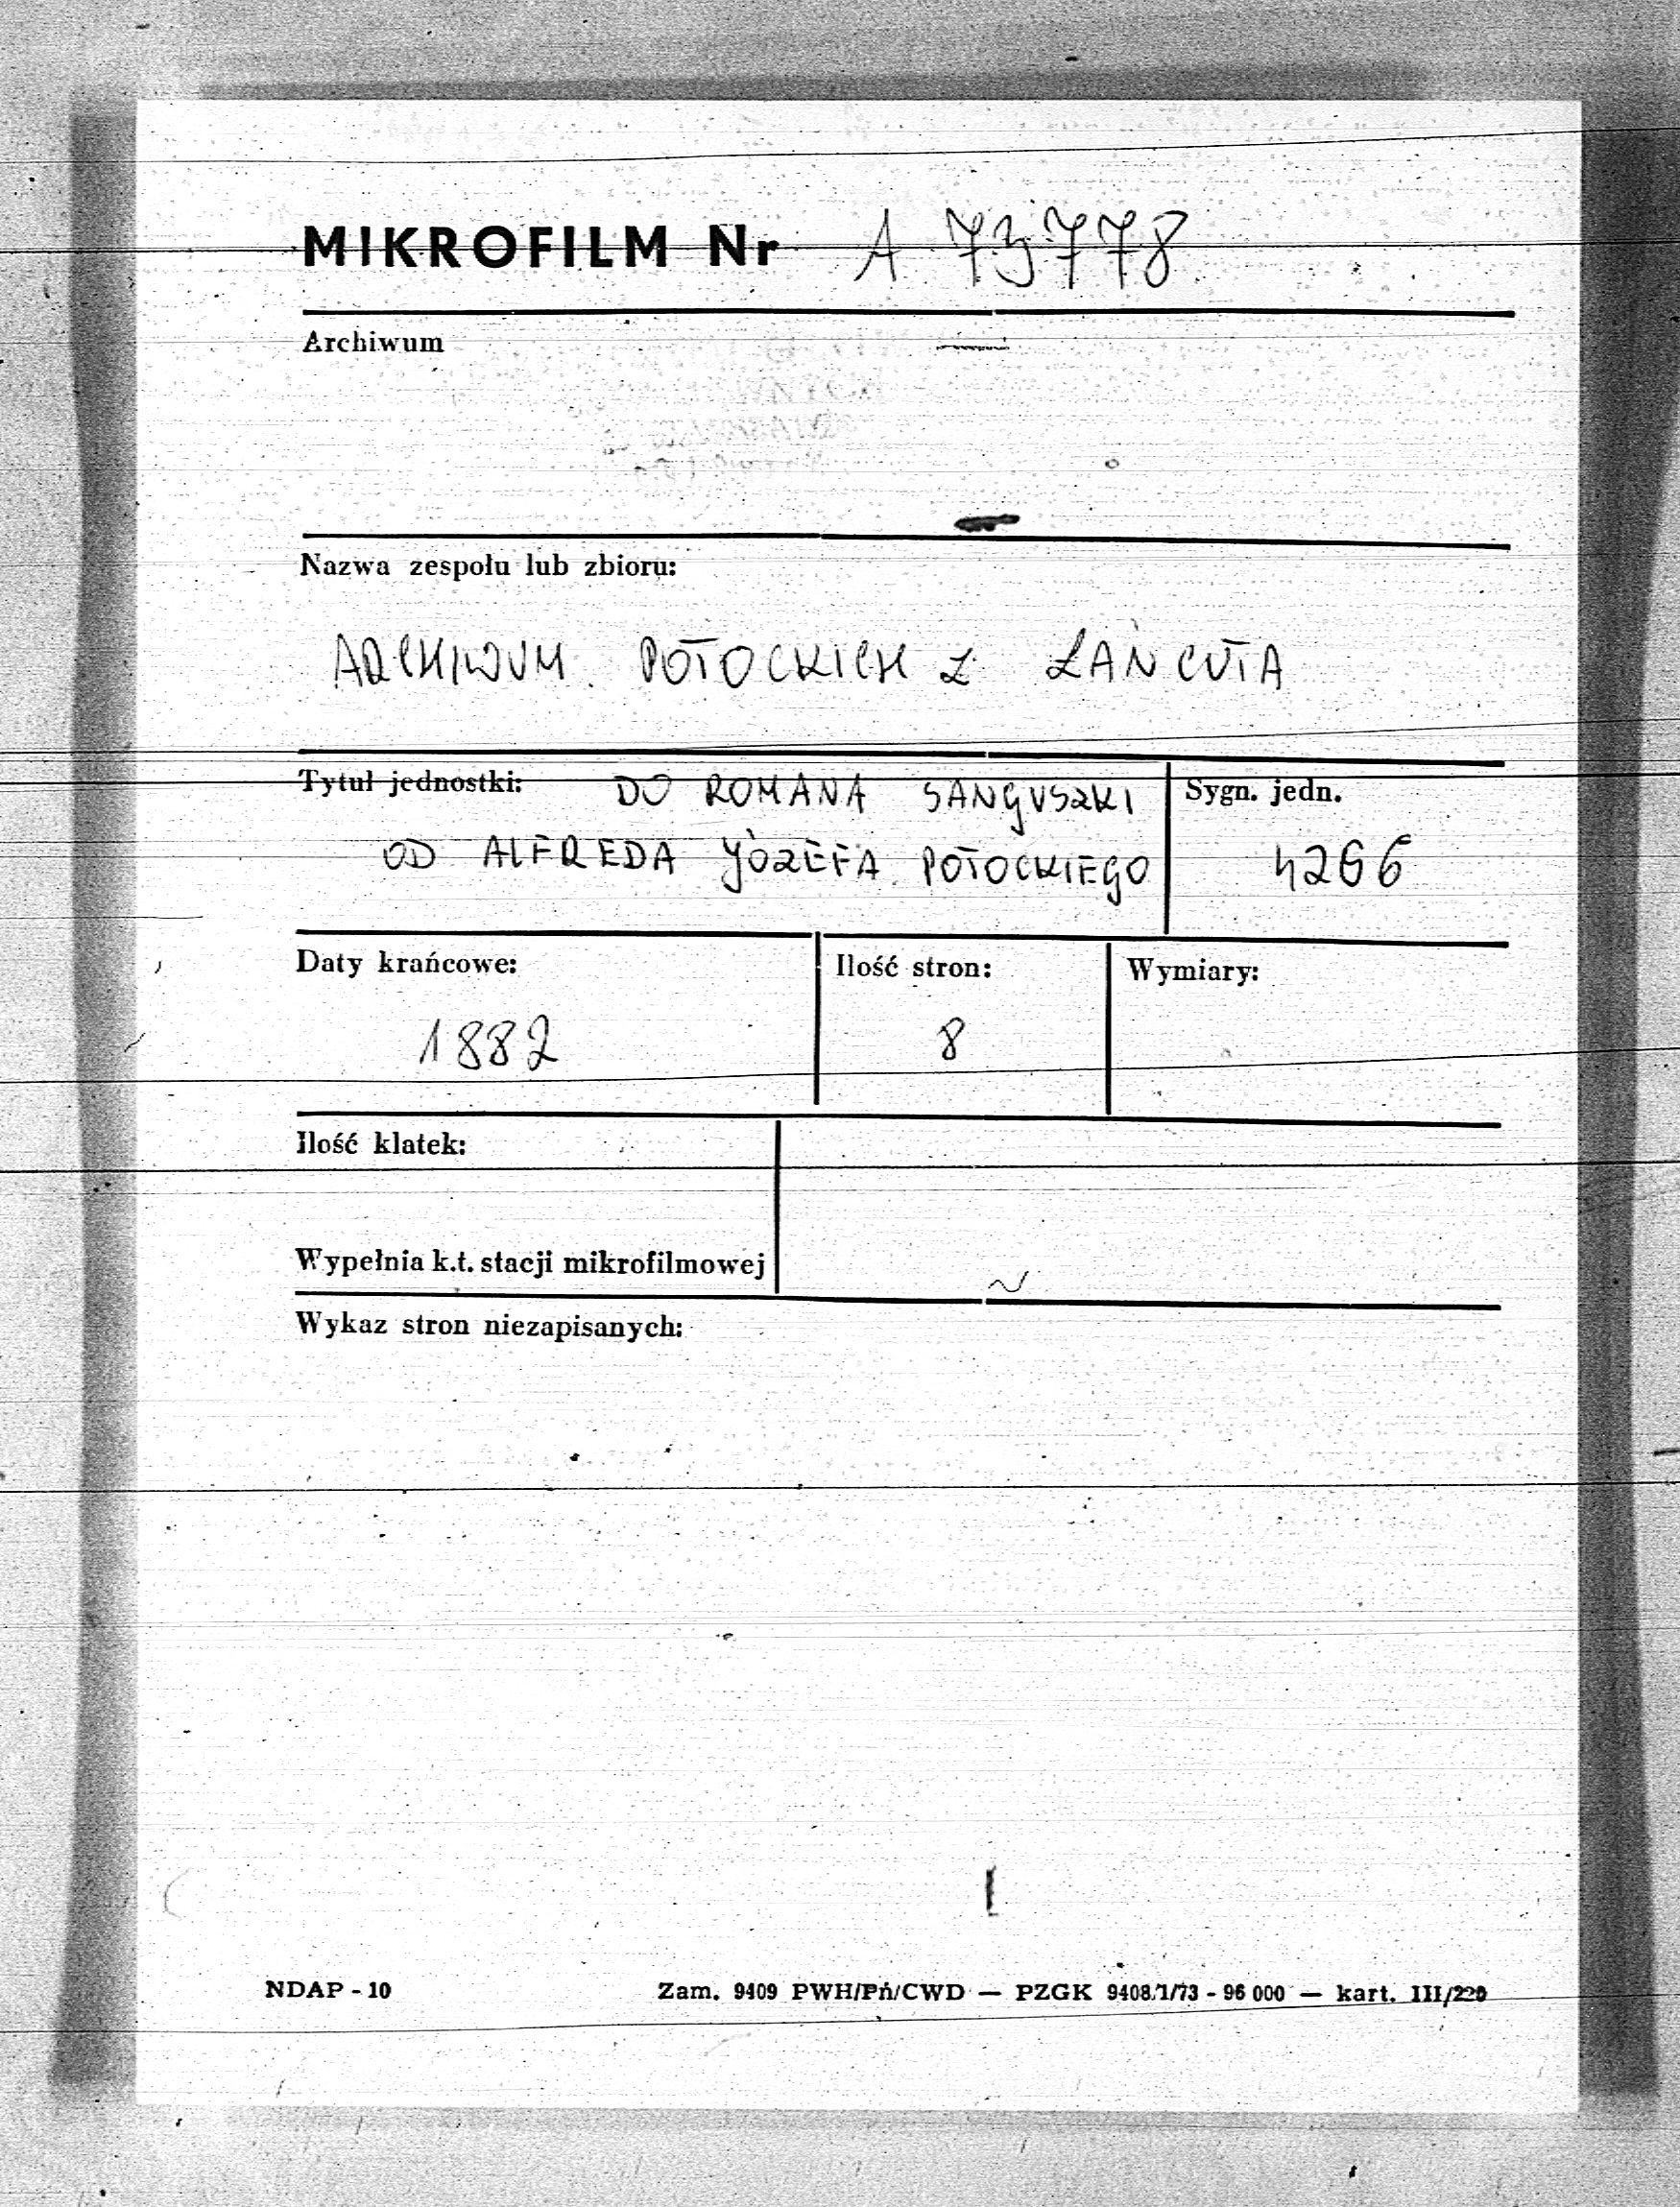 MIKROFILM Nr A 73778
Archiwum
Nazwa zespołu lub zbioru:
ARCHIWUM POTOCKICH Z ŁAŃCUTA
Tytuł jednostki: DO ROMANA SANGUSZKI
OD ALFREDA JÓZEFA POTOCKIEGO
Sygn. jedn.
4266
Daty krańcowe:
1882
Ilość stron:
8
Wymiary:
Ilość klatek:
Wypełnia k.t. stacji mikrofilmowej
Wykaz stron niezapisanych:
NDAP - 10
Zam. 9409 PWH/Pń/CWD — PZGK 9408/1/73 - 96 000 — kart. III/220